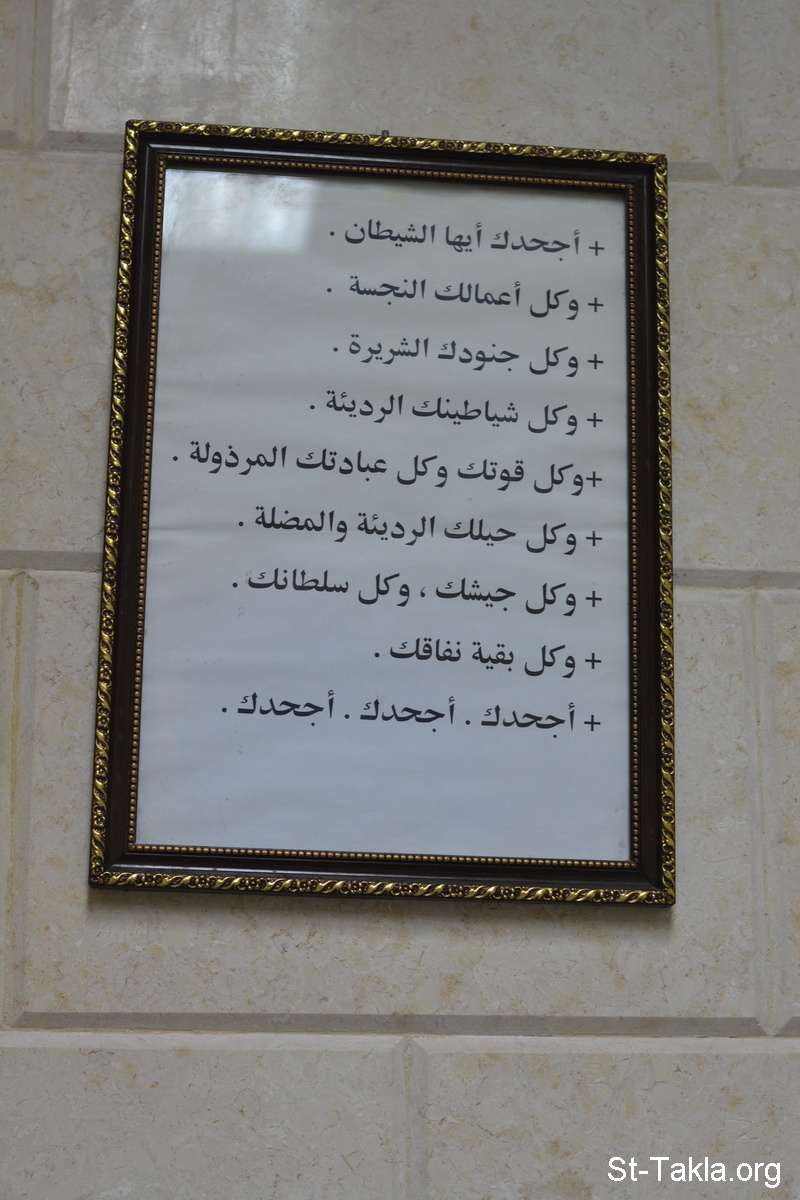 + أجحدك أيها الشيطان .
+ وكل أعمالك النجسة .
+ وكل جنودك الشريرة .
+ وكل شياطينك الرديئة .
+وكل قوتك وكل عبادتك المرذولة .
+ وكل حيلك الرديئة والمضلة .
+ وكل جيشك ، وكل سلطانك .
+ وكل بقية نفاقك .
+ أجحدك . أجحدك . أجحدك .
St-Takla.org